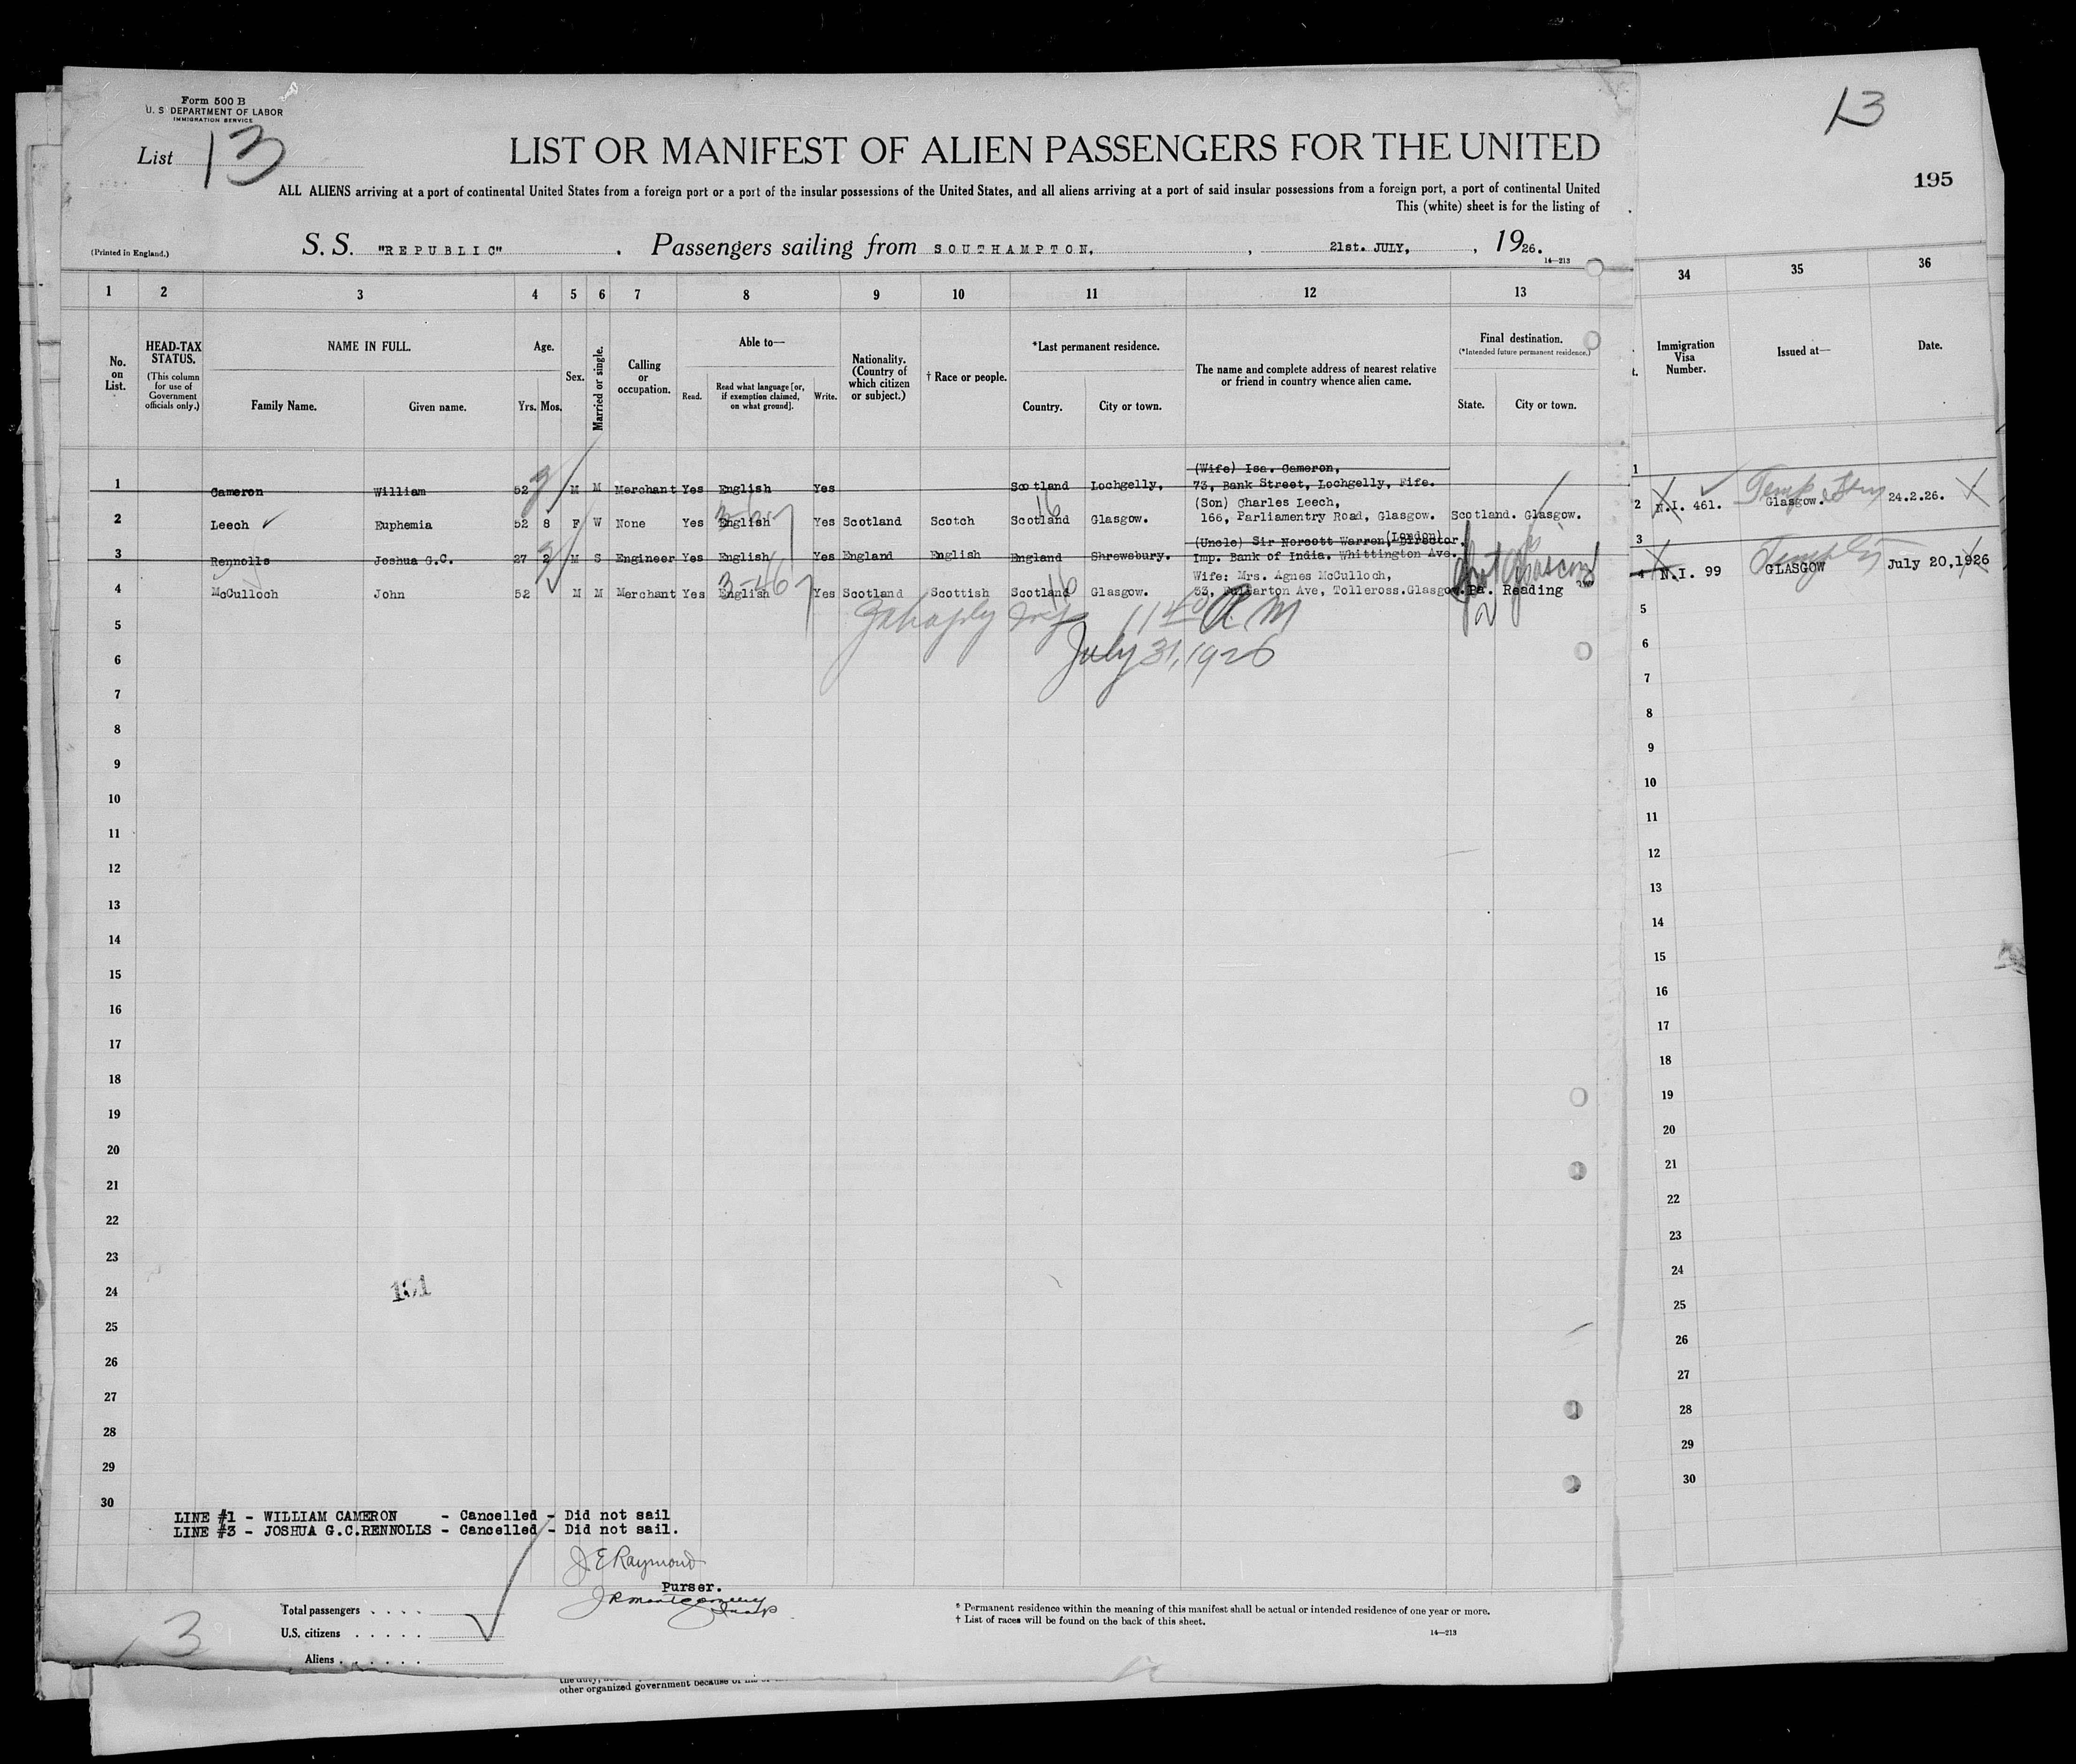 Form 500 B
U. S DEPARTMENT OF LABOR
IMMIGRATION SERVICE
List 13
LIST OR MANIFEST OF ALIEN PASSENGERS FOR THE UNITED
13
195
ALL ALIENS arriving at a port of continental United States from a foreign port or a port of the insular possessions of the United States, and all aliens arriving at a port of said insular possessions from a foreign port, a port of continental United
This (white) sheet is for the listing of
(Printed in England.)
S. S. "REPUBLIC" . Passengers sailing from SOUTHAMPTON. , 21st. JULY, , 1926.
14—213
1 2 3 4 5 6 7 8 9 10 11 12 13 34 35 36
No. on List.
HEAD-TAX STATUS.
(This column for use of Government officials only.)
NAME IN FULL.
Family Name. Given name.
Age.
Yrs. Mos.
Sex.
Married or single.
Calling or occupation.
Able to—
Read. Read what language [or, if exemption claimed, on what ground]. Write.
Nationality. (Country of which citizen or subject.)
† Race or people.
*Last permanent residence.
Country. City or town.
The name and complete address of nearest relative or friend in country whence alien came.
Final destination.
(*Intended future permanent residence.)
State. City or town.
Immigration Visa Number.
Issued at—
Date.
(Wife) Isa. Cameron,
1 Cameron William 52 M M Merchant Yes English Yes Scotland Lochgelly, 73, Bank Street, Lochgelly, Fife. 1
(Son) Charles Leech,
2 Leech Euphemia 52 8 F W None Yes English Yes Scotland Scotch Scotland Glasgow. 166, Parliamentry Road, Glasgow. Scotland. Glasgow. 2 N.I. 461. Glasgow. 24.2.26.
(Uncle) Sir Norcott Warren, (London) Director.
3 Rennolls Joshua G.C. 27 2 M S Engineer Yes English Yes England English England Shrewsbury. Imp. Bank of India. Whittington Ave. 3
Wife: Mrs. Agnes McCulloch,
4 McCulloch John 52 M M Merchant Yes English Yes Scotland Scottish Scotland Glasgow. 53, Fullarton Ave, Tolleross.Glasgow. Pa. Reading 4 N.I. 99 GLASGOW July 20,1926
11 40 A M
July 31, 1926
5 5
6 6
7 7
8 8
9 9
10 10
11 11
12 12
13 13
14 14
15 15
16 16
17 17
18 18
19 19
20 20
21 21
22 22
23 23
24 24
191
25 25
26 26
27 27
28 28
29 29
30 30
LINE #1 - WILLIAM CAMERON - Cancelled - Did not sail
LINE #3 - JOSHUA G.C.RENNOLLS - Cancelled - Did not sail.
J E Raymond
Purser.
J R Montgomery
Insp
Total passengers . . . .
U.S. citizens . . . . .
Aliens . . . . . .
13
* Permanent residence within the meaning of this manifest shall be actual or intended residence of one year or more.
† List of races will be found on the back of this sheet.
14—213
other organized government because of